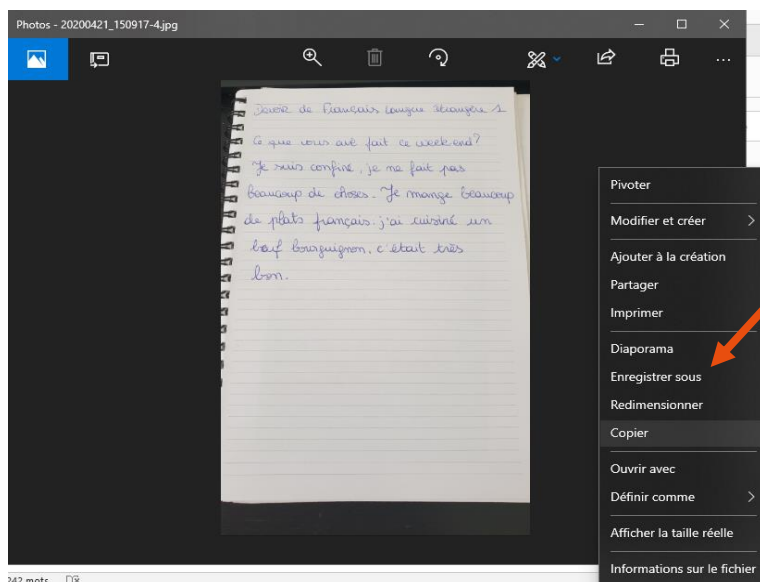 Photos - 20200421_150917-4.jpg
Devoir de Français Langue étrangère 1
Ce que vous avé fait ce week-end?
Je suis confiné, je ne fait pas
beaucoup de choses. Je mange beaucoup
de plats français: j'ai cuisiné un
bœuf bourguignon, c'était très
bon.
Pivoter
Modifier et créer
Ajouter à la création
Partager
Imprimer
Diaporama
Enregistrer sous
Redimensionner
Copier
Ouvrir avec
Définir comme
Afficher la taille réelle
Informations sur le fichier
242 mots